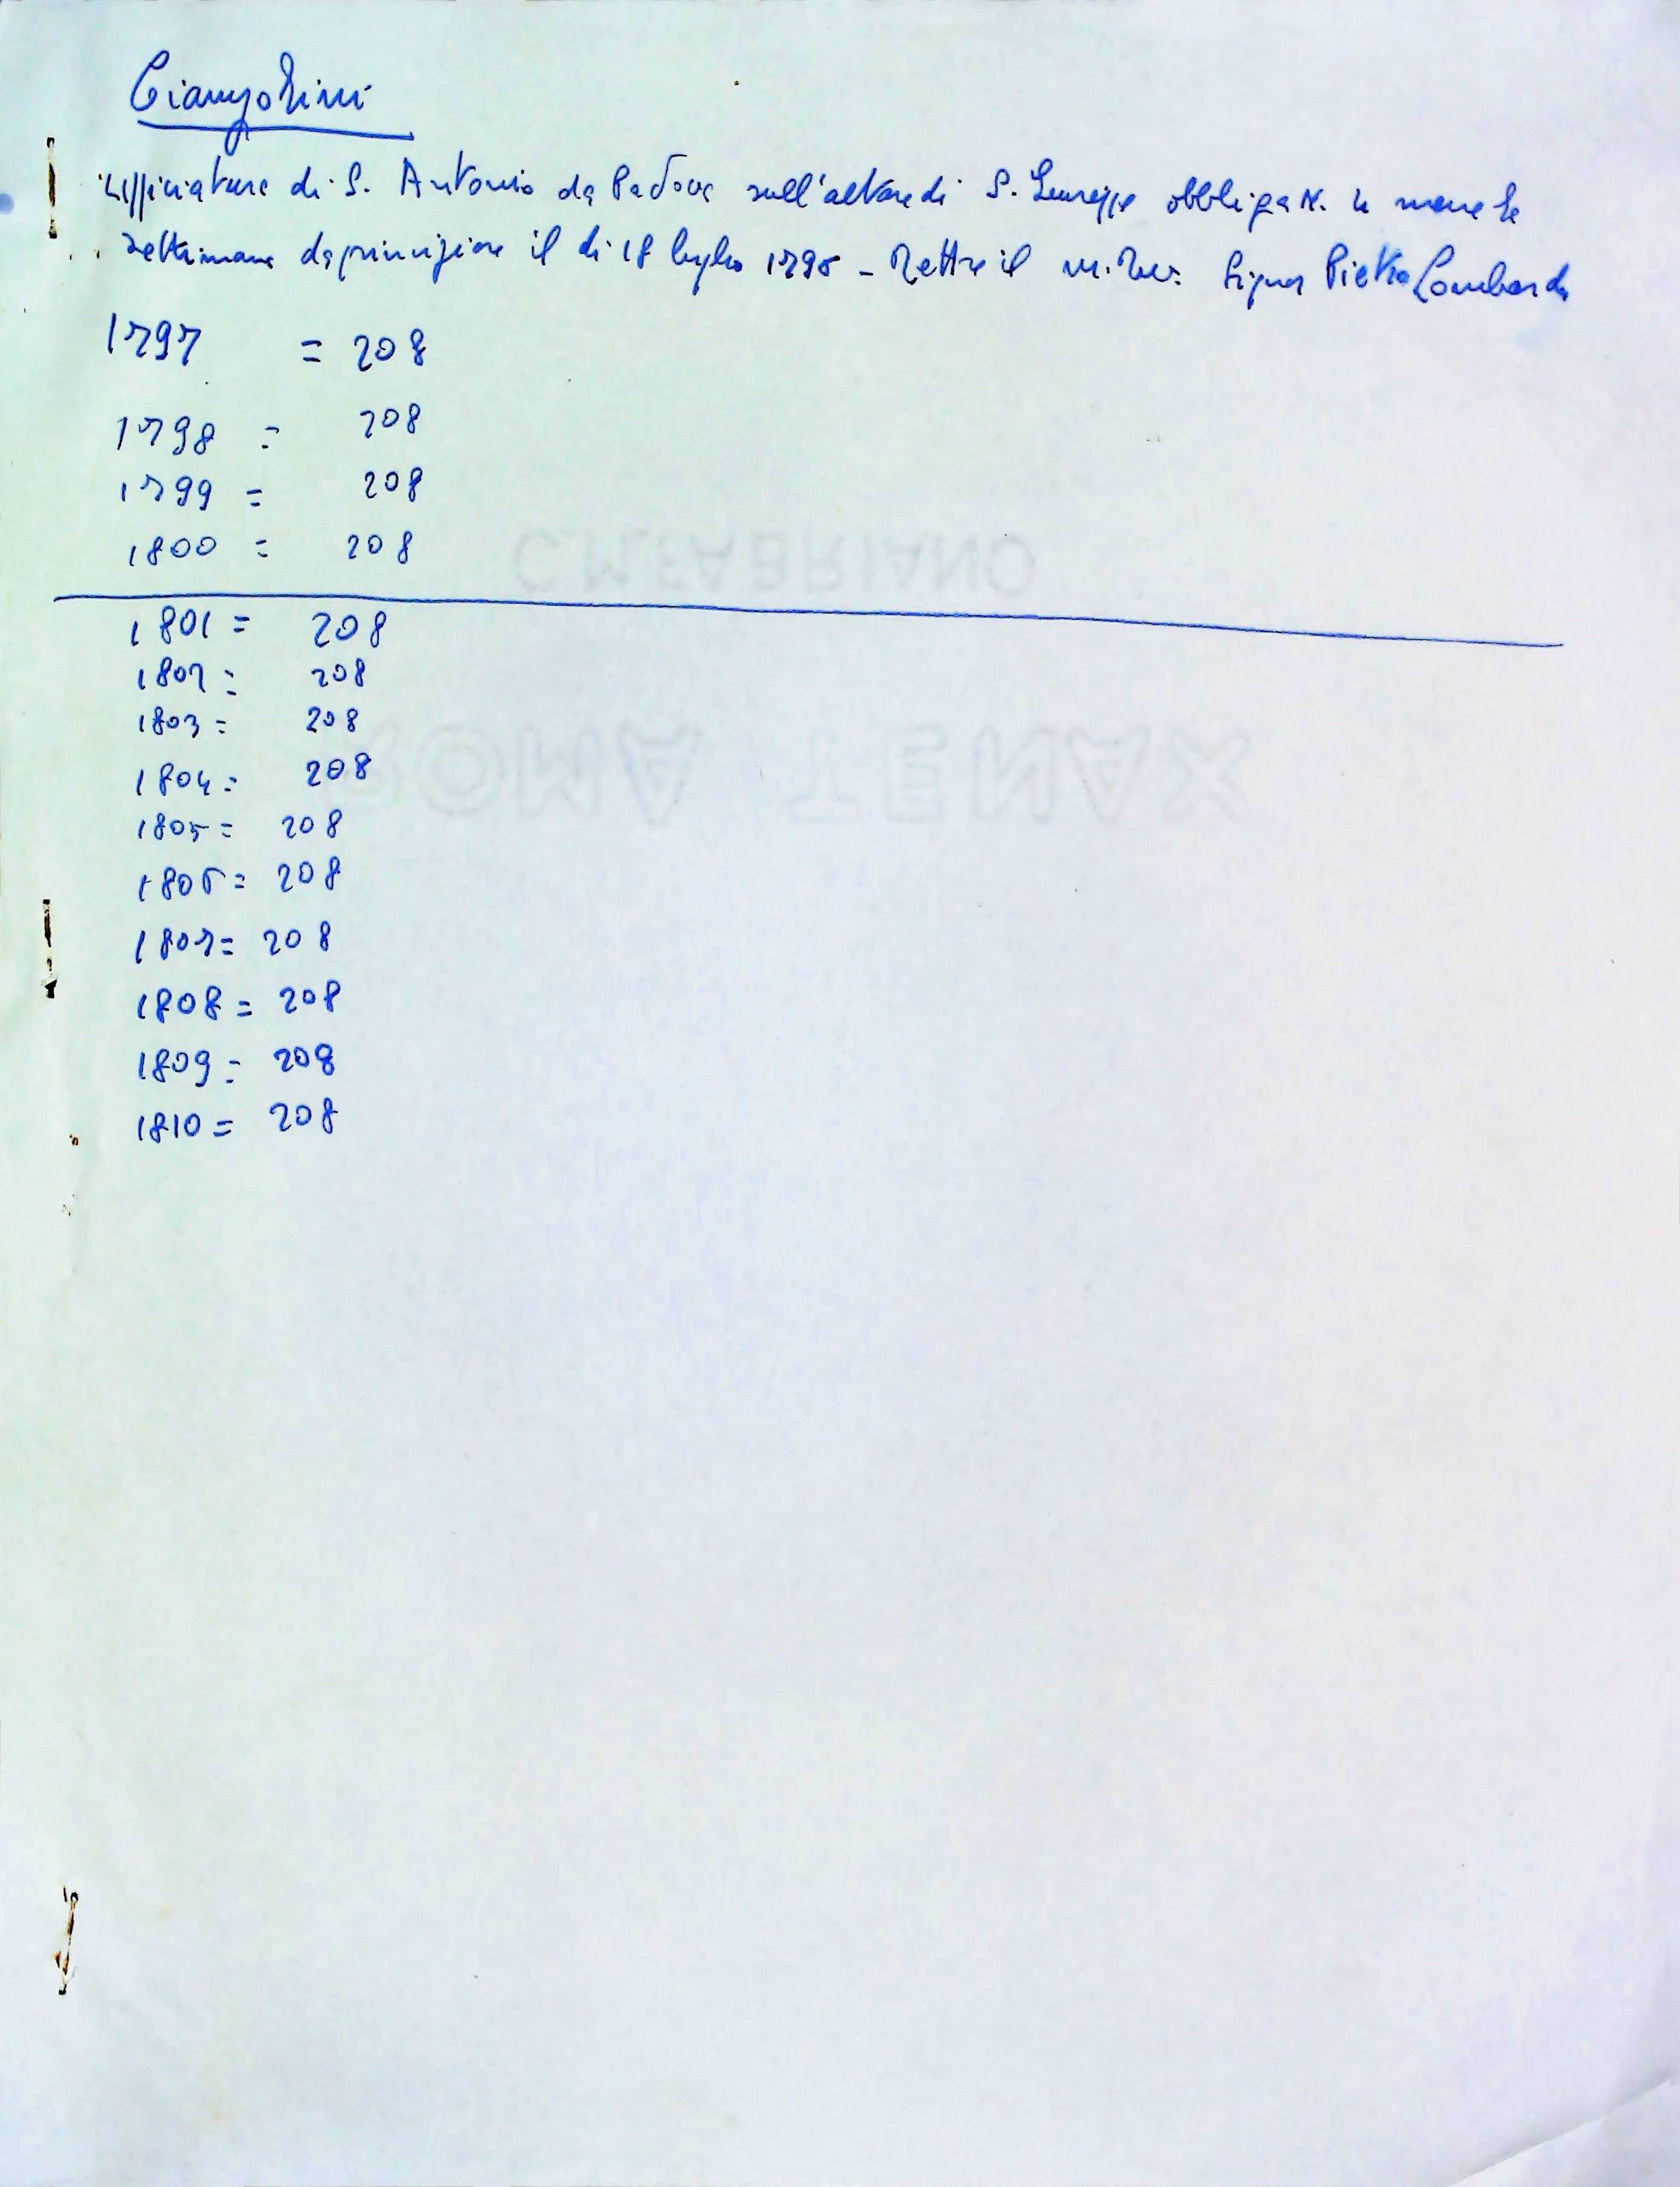 Uffiniatura di S. Antonio da Padova sull'altare di S. Giuseppe obbligata N. 4 messe la
settimana da principiare il di 18 luglio 1796 - Rettore il M. Rev. Signor Pietro Lombardi
1797 = 208
1798 = 208
1799 = 208
1800 = 208
C.M.FABRIANO
1801 = 208
1802 = 208
1803 = 208
ROMA TENAX
1804 = 208
1805 = 208
1806 = 208
1807 = 208
1808 = 208
1809 = 208
1810 = 208